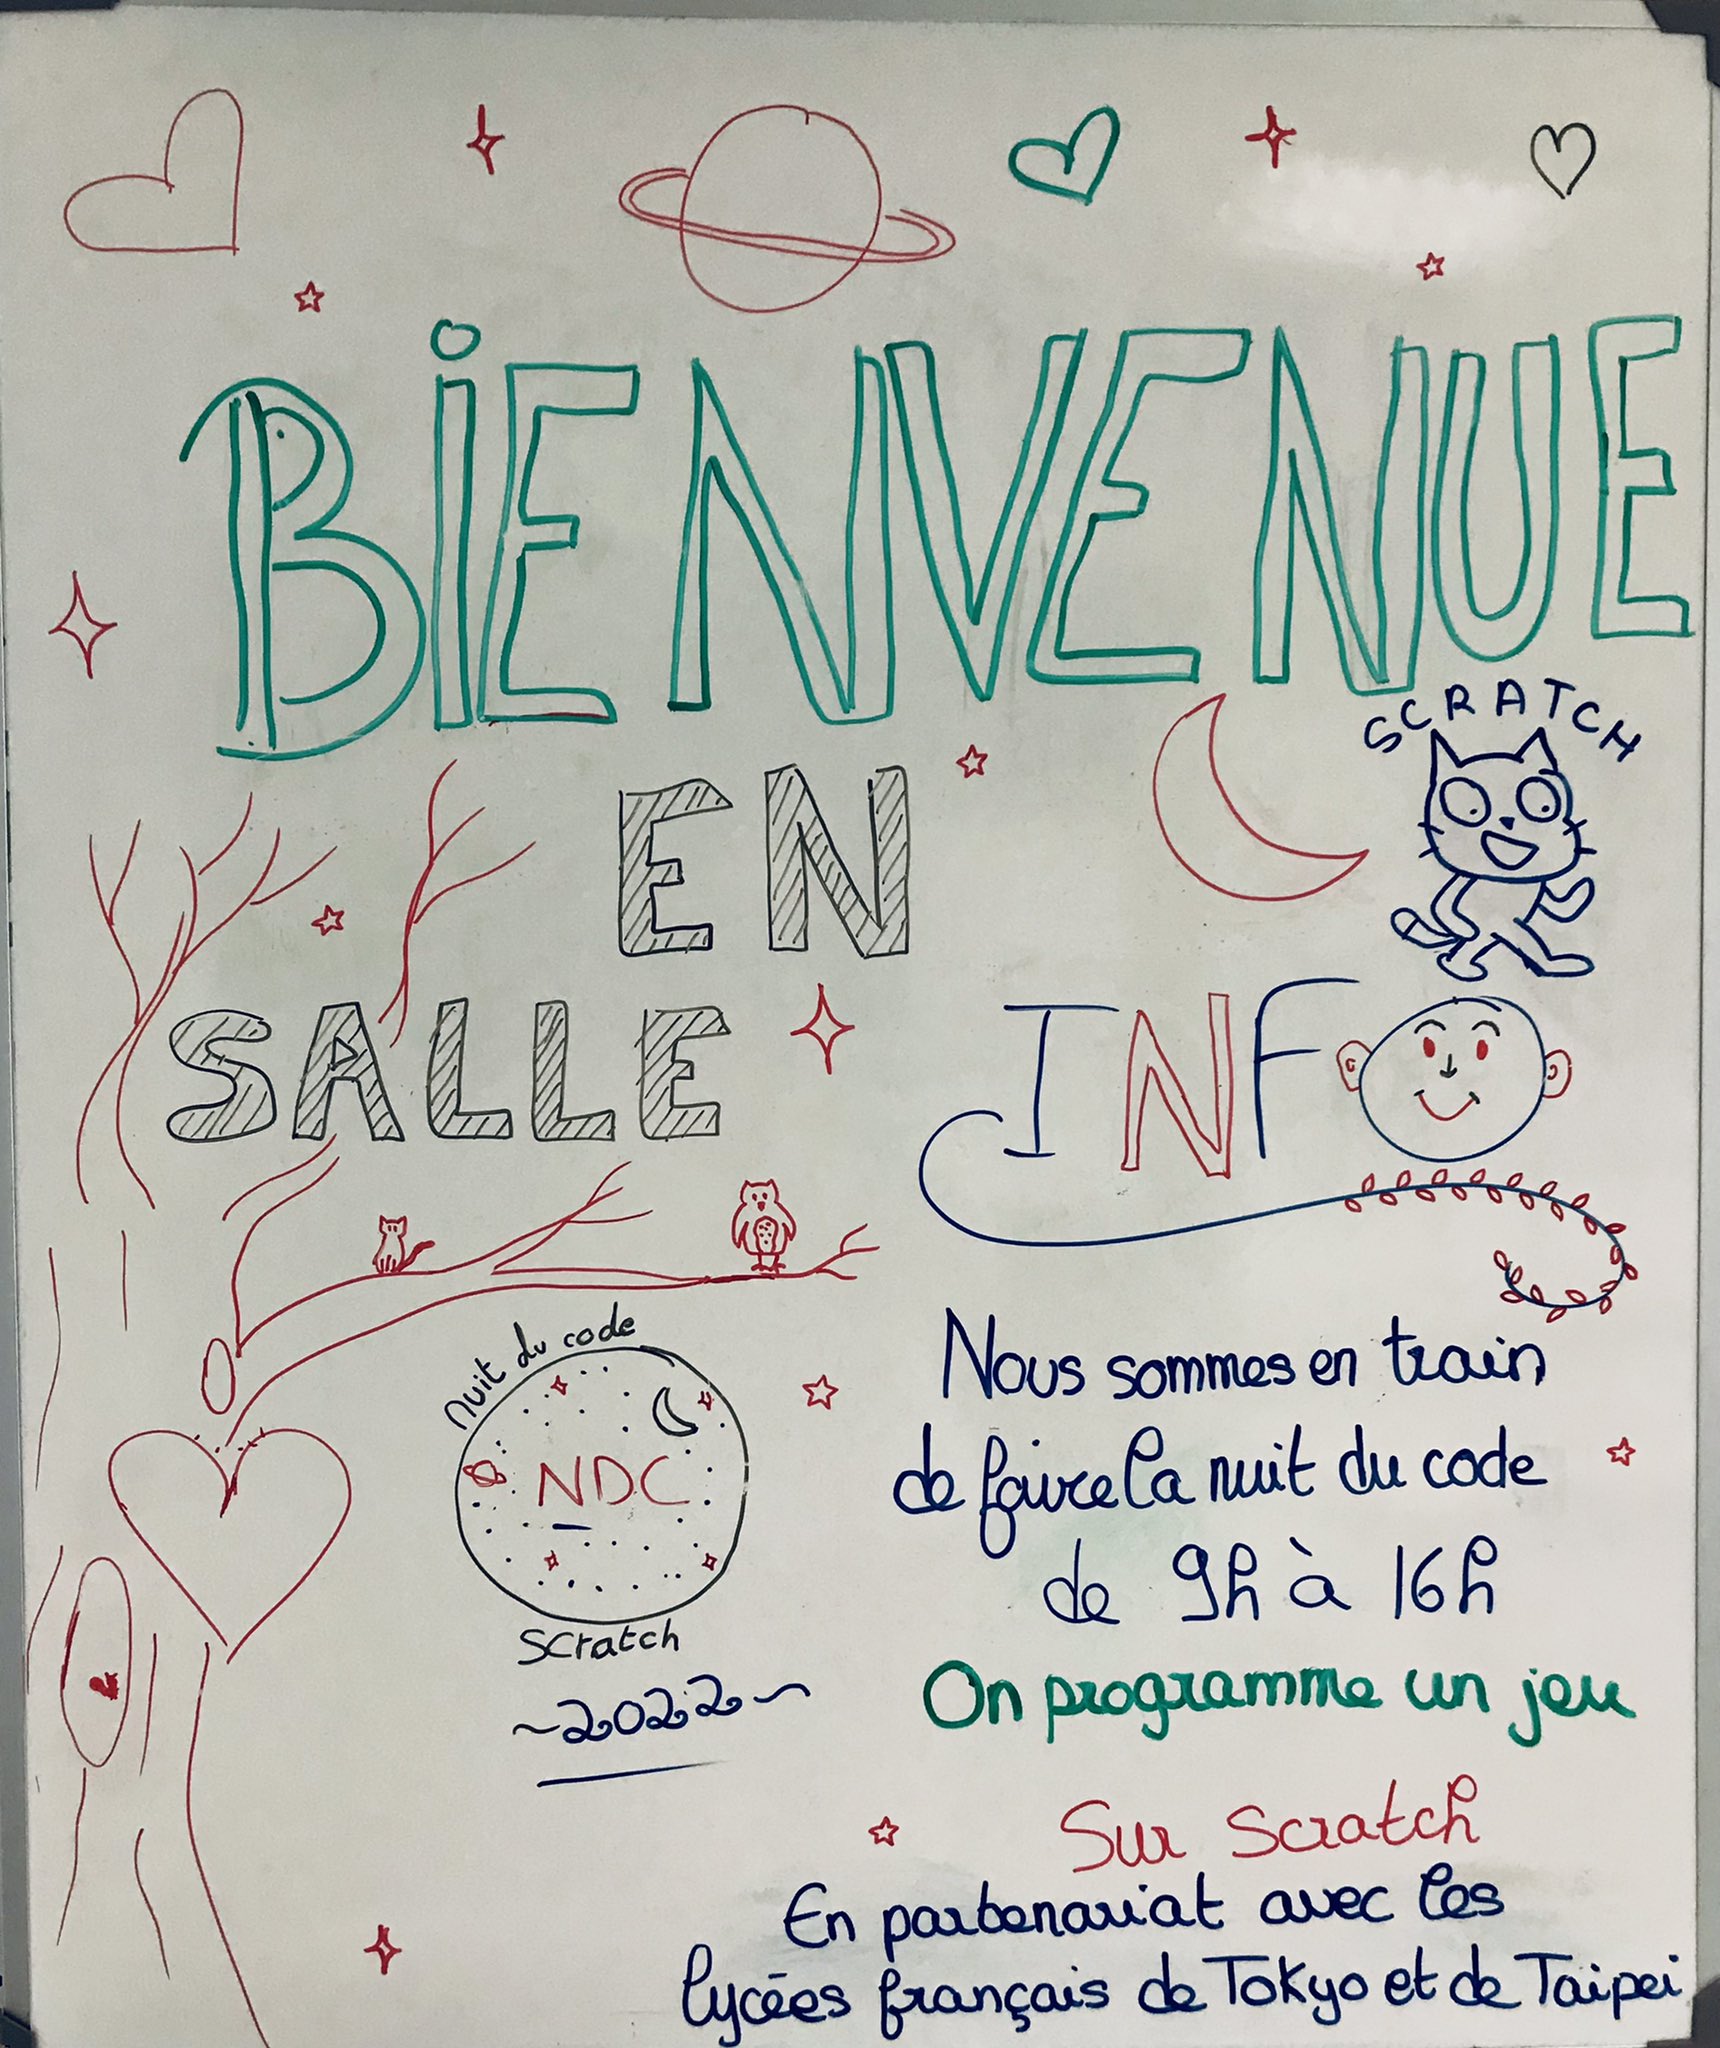 BiENVENUE
SCRATCH
EN
SALLE INFO
nuit du code
NDC
Scratch
~2022~
Nous sommes en train
de faire la nuit du code
de 9h à 16h
On programme un jeu
Sur Scratch
En partenariat avec les
lycées français de Tokyo et de Taipei